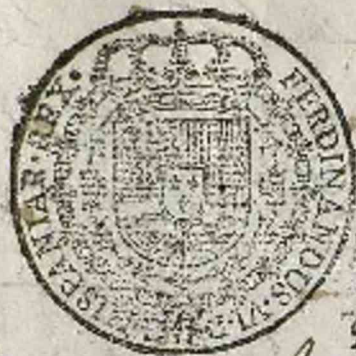 FERDINANDUS·VI·
HISPANIAR·REX·